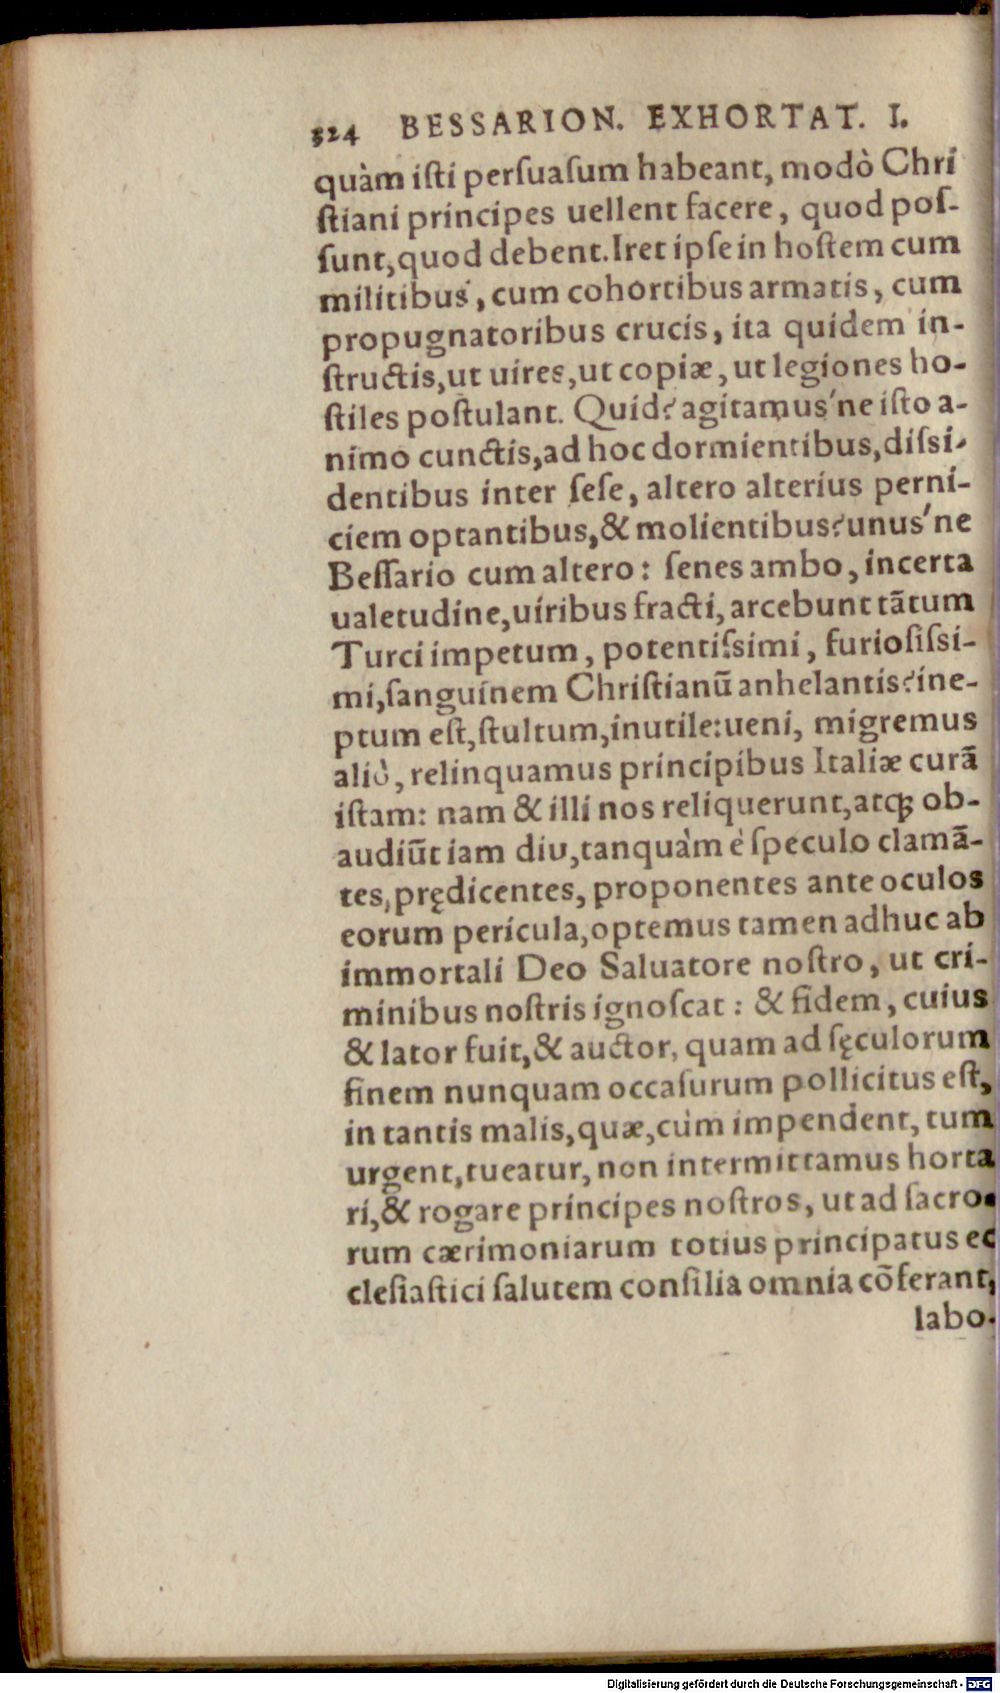 324 BESSARION. EXHORTAT. I.
quàm iſti perſuaſum habeant, modò Chri
ſtiani principes uellent facere, quod poſ-
ſunt, quod debent. Iret ipſe in hoſtem cum
militibus, cum cohortibus armatis, cum
propugnatoribus crucis, ita quidem in-
ſtructis, ut uires, ut copiæ, ut legiones ho-
ſtiles poſtulant. Quid? agitamus'ne iſto a-
nimo cunctis, ad hoc dormientibus, diſsi-
dentibus inter ſeſe, altero alterius perni-
ciem optantibus, & molientibus? unus'ne
Beſſario cum altero: ſenes ambo, incerta
ualetudine, uiribus fracti, arcebunt tãtum
Turci impetum, potentiſsimi, furioſiſsi-
mi, ſanguinem Chriſtianũ anhelantis? ine-
ptum eſt, ſtultum, inutile: ueni, migremus
aliò, relinquamus principibus Italiæ curã
iſtam: nam & illi nos reliquerunt, atq; ob-
audiũt iam diu, tanquàm è ſpeculo clamã-
tes, prędicentes, proponentes ante oculos
eorum pericula, optemus tamen adhuc ab
immortali Deo Saluatore noſtro, ut cri-
minibus noſtris ignoſcat: & fidem, cuius
& lator fuit, & auctor, quam ad ſęculorum
finem nunquam occaſurum pollicitus eſt,
in tantis malis, quæ, cùm impendent, tum
urgent, tueatur, non intermittamus horta
ri, & rogare principes noſtros, ut ad ſacro-
rum cærimoniarum totius principatus ec
cleſiaſtici ſalutem conſilia omnia cõferant,
labo-
Digitalisierung gefördert durch die Deutsche Forschungsgemeinschaft - DFG